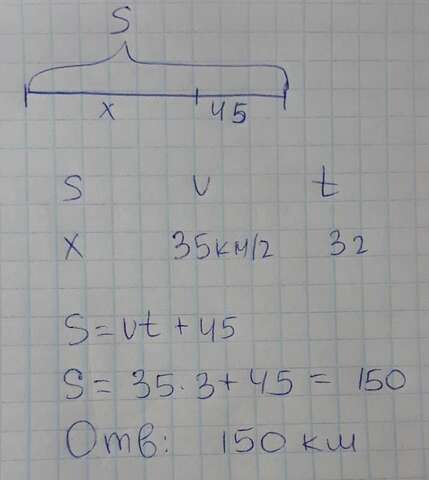 S
x 45
S v t
x 35км/г 3г
S = vt + 45
S = 35·3 + 45 = 150
Отв: 150 км